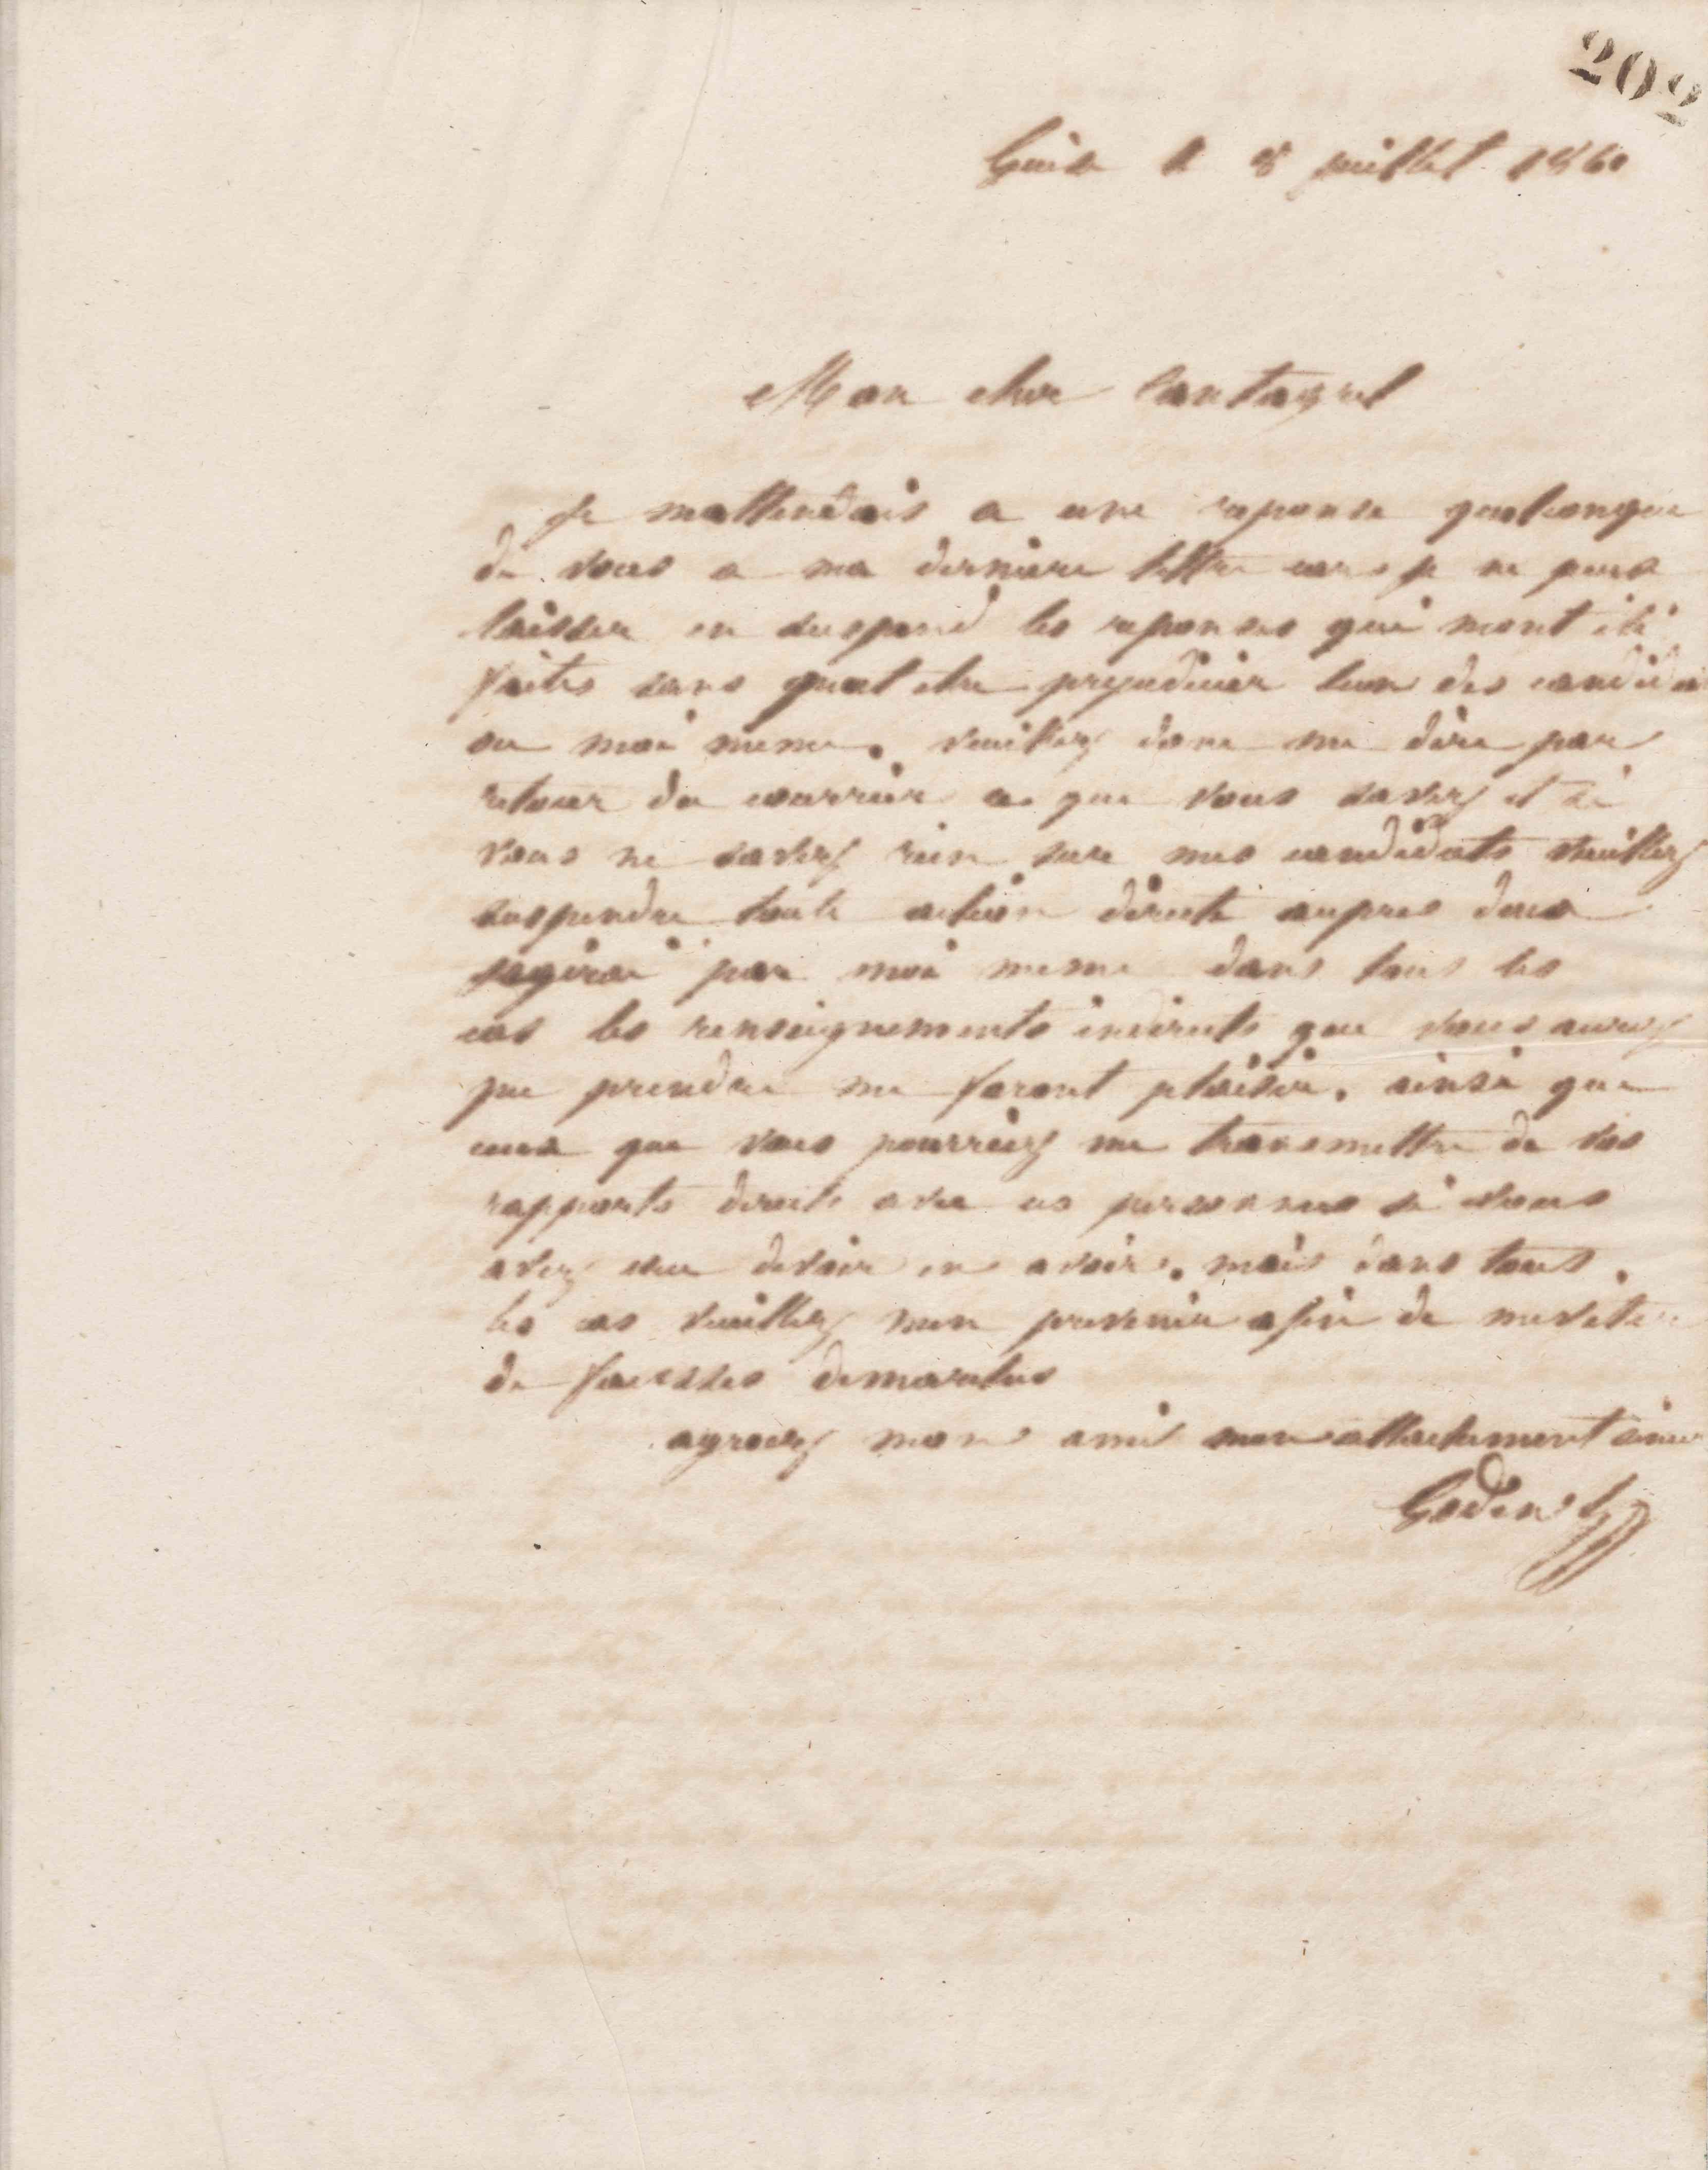 202
Guise le 8 juillet 1860
Mon cher Cantagrel
Je mattendais a une reponse quelconque
de vous a ma derniere lettre car je ne peux
laisser en suspend les reponses qui mont été
faites sans peut etre prejudicier lun des candidats
ou moi meme. veuillez donc me dire par
retour du courrier ce que vous savez et si
vous ne savez rien sur mes candidats veuillez
suspendre toute action directe aupres deux
jagirai par moi meme dans tous les
cas les renseignements indirects que vous aurez
pu prendre me feront plaisir. ainsi que
ceux que vous pourriez me transmettre de vos
rapports directs avec ces personnes si vous
avez cru devoir en avoir. mais dans tous
les cas veuillez men prevenir afin de meviter
de fausses demarches
agreez mon ami mon attachement sincere
Godin